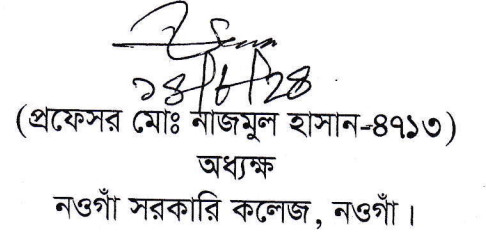 ১৪/৮/২৪
(প্রফেসর মোঃ নাজমুল হাসান-৪৭১৩)
অধ্যক্ষ
নওগাঁ সরকারি কলেজ, নওগাঁ।